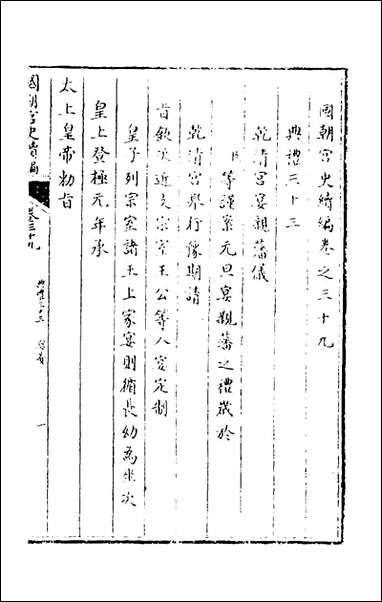 國朝宮史續編卷之三十九
典禮三十三
乾清宮宴親藩儀
臣等謹案元旦宴親藩之禮歲於
乾清宮舉行豫期請
旨欽次近支宗室王公等入宴定制
皇子列宗室諸王上家宴則循長幼為坐次
皇上登極元年承
太上皇帝勅旨
國朝宮史續編
卷三十九
典禮三十三
一